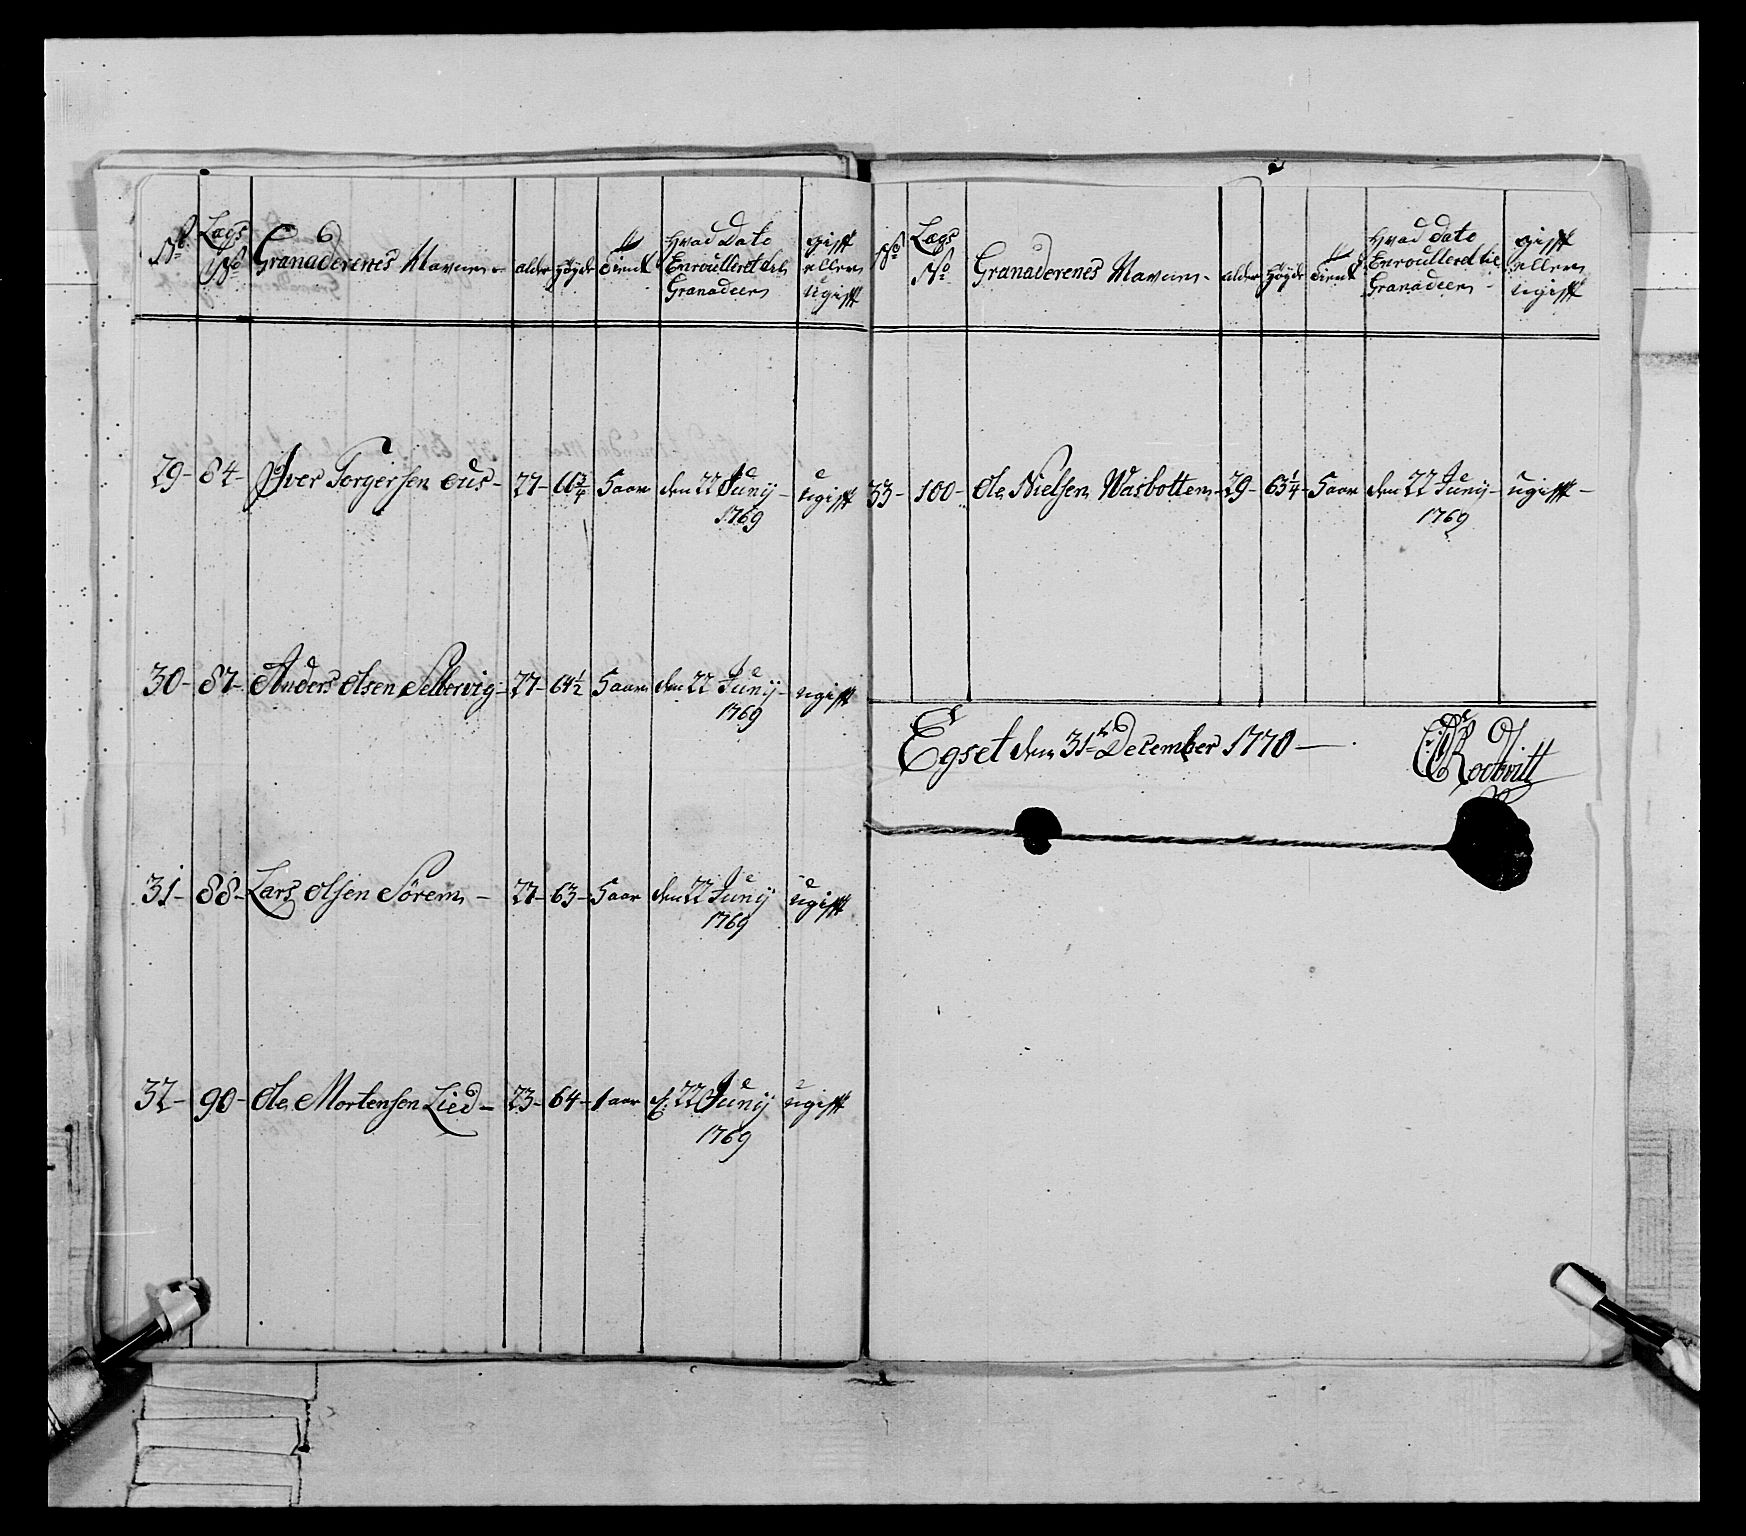 No
Lægs No
Granaderenes Navne
alder
Høyde
Tient
Hvad Dato Enroulleret til Granadeer
gifft eller ugifft
29 - 84 - Iver Torgersen ous - 27 - 60 3/4 5 aar den 22 Juny 1769 ugifft
30 - 87 - Anders Olsen Sellevig - 27 - 64 1/2 5 aar den 22 Juny 1769 ugifft
31 - 88 - Lars Olsen Sørem - 27 - 63 - 5 aar den 22 Juny 1769 ugifft
32 - 90 - Ole Mortensen Lied - 23 - 64 - 1 aar d: 22 Juny 1769 ugifft
No
Lægs No
Granaderenes Navne
alder
Høyde
Tient
Hvad dato Enroulleret til Granadeer
gifft eller ugifft
33 - 100 - Ole Nielsen Wasbotten - 29 - 63 1/4 - 5 aar den 22 Juny 1769 ugifft -
Egset den 31te December 1770 -
Rodtvitt